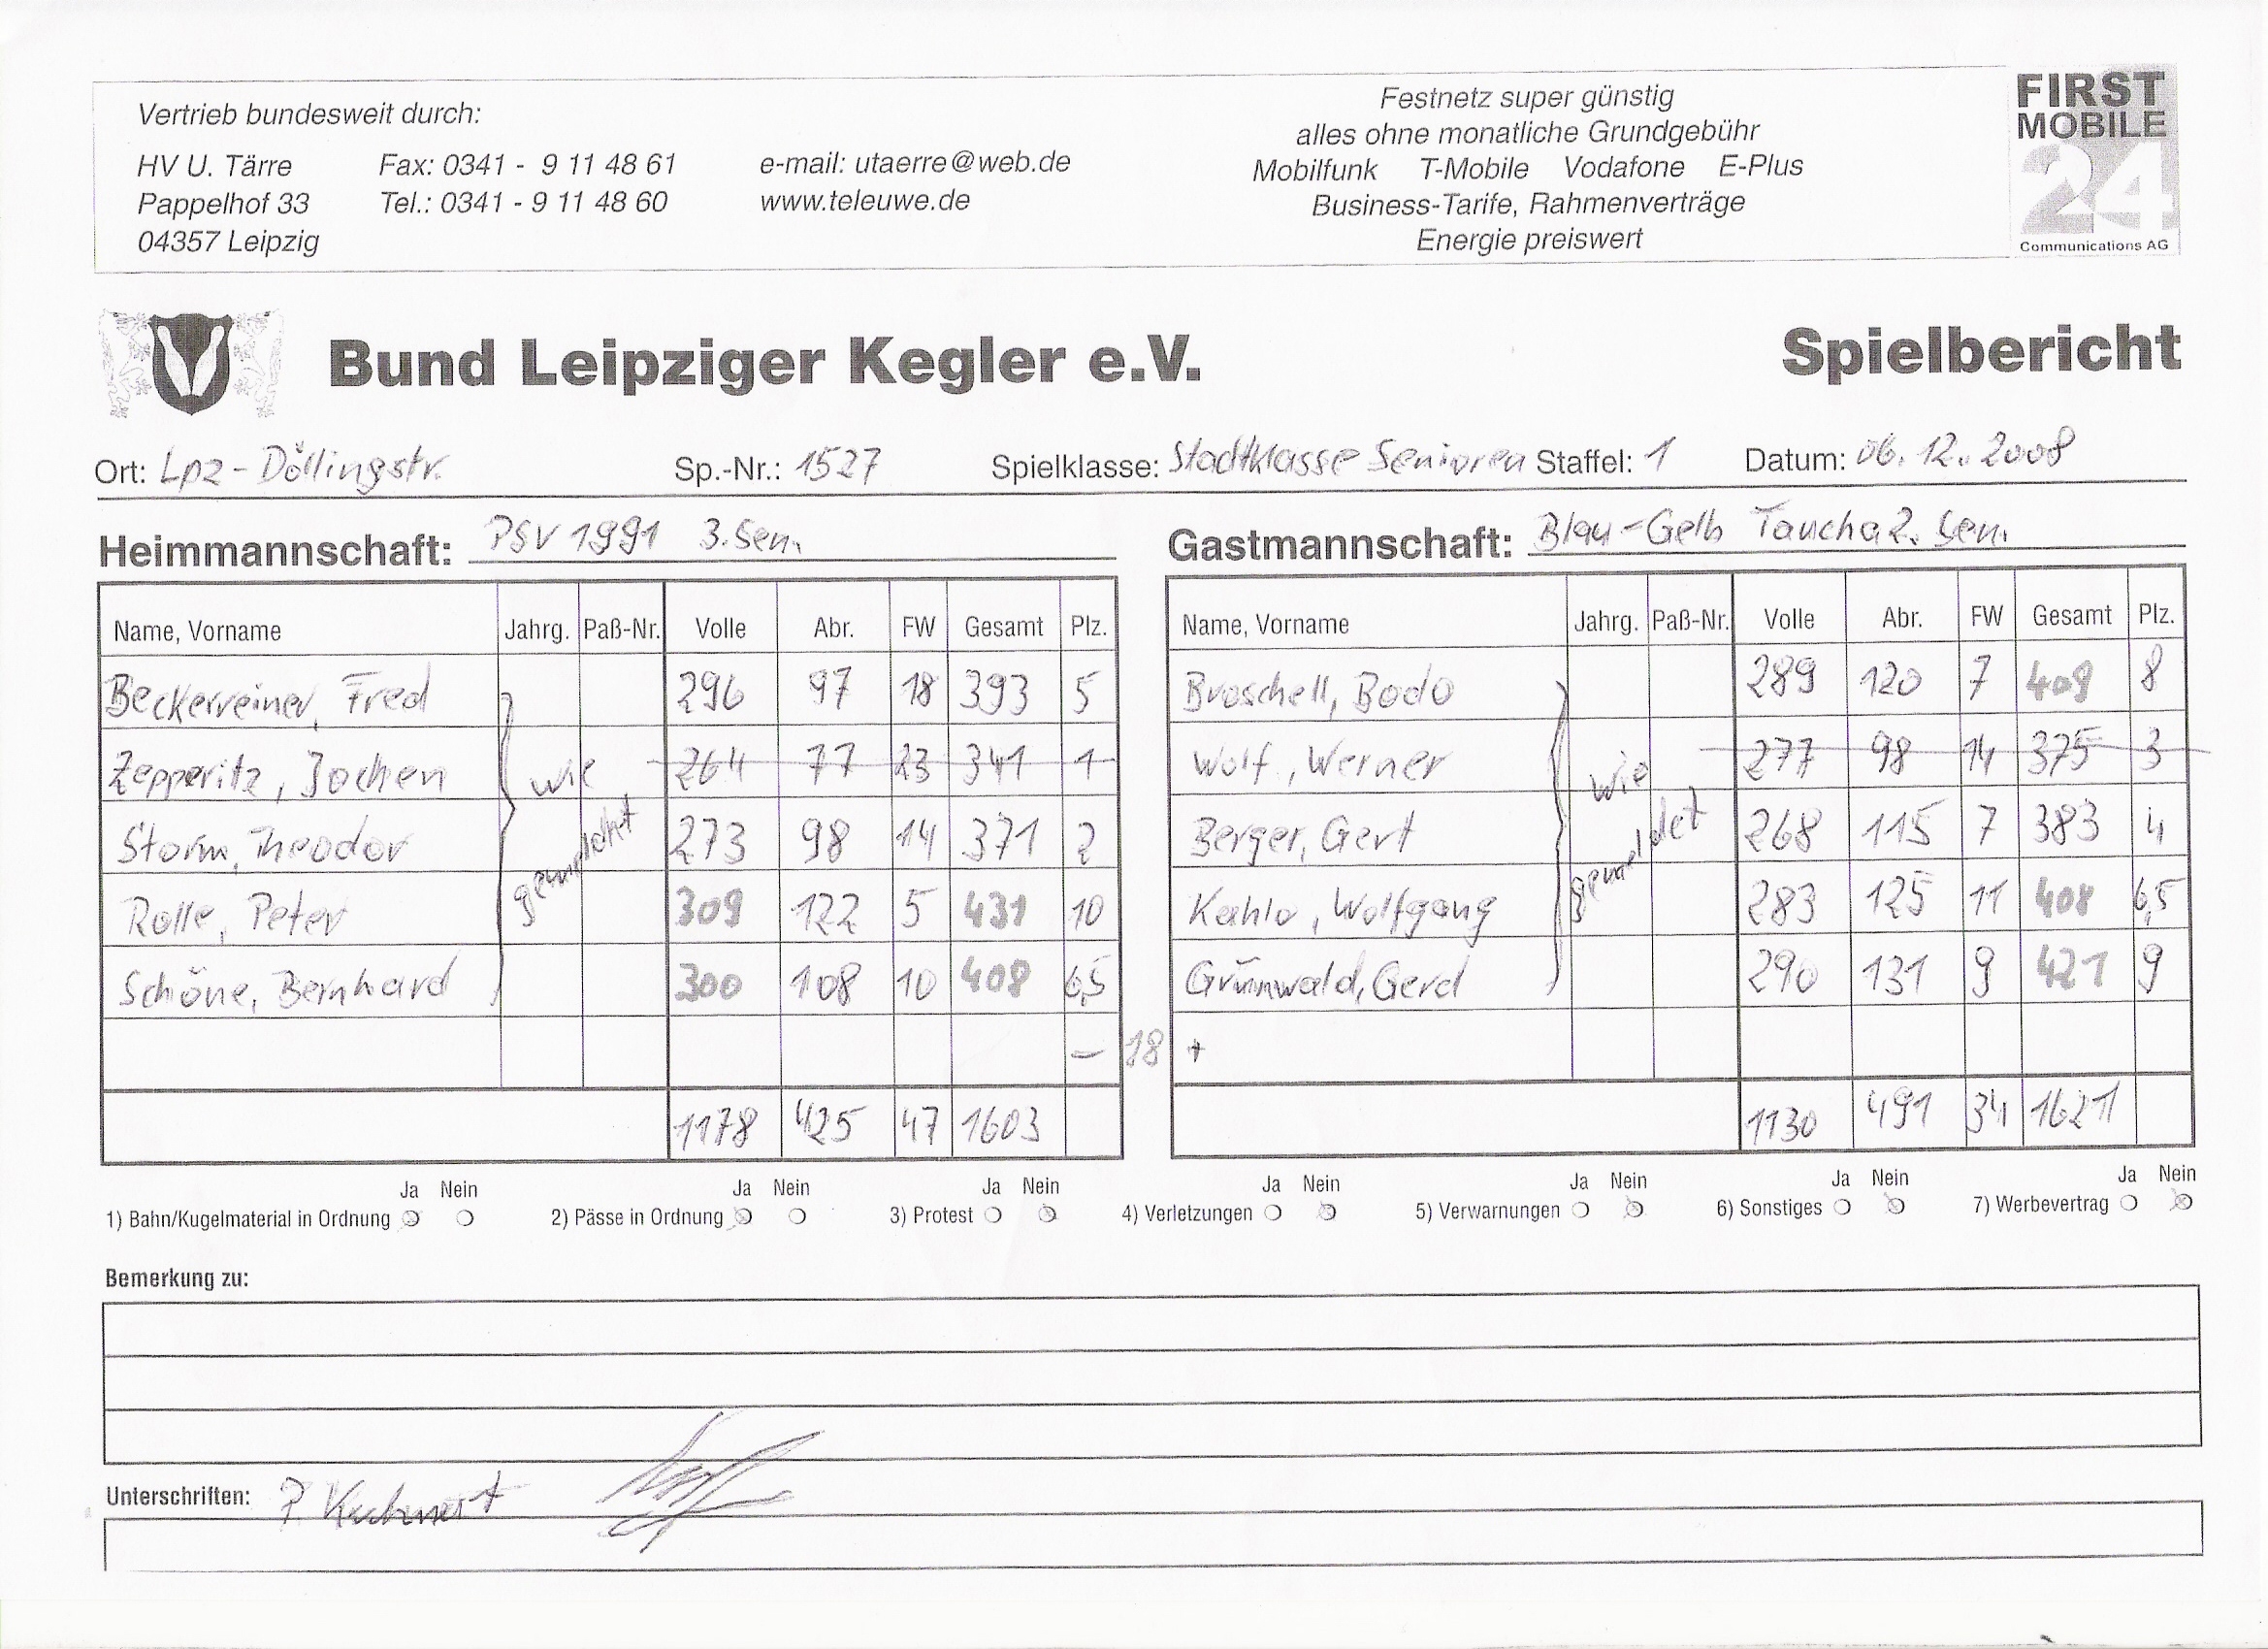 Vertrieb bundesweit durch:
HV U. Tärre Fax: 0341 - 9 11 48 61 e-mail: utaerre@web.de
Pappelhof 33 Tel.: 0341 - 9 11 48 60 www.teleuwe.de
04357 Leipzig
Festnetz super günstig
alles ohne monatliche Grundgebühr
Mobilfunk T-Mobile Vodafone E-Plus
Business-Tarife, Rahmenverträge
Energie preiswert
FIRST
MOBILE
24
Communications AG
Bund Leipziger Kegler e.V. Spielbericht
Ort: Lpz-Döllingstr. Sp.-Nr.: 1527 Spielklasse: Stadtklasse Senioren Staffel: 1 Datum: 06.12.2008
Heimmannschaft: PSV 1991 3. Sen.
Name, Vorname Jahrg. Paß-Nr. Volle Abr. FW Gesamt Plz.
Beckerreiner, Fred 296 97 18 393 5
Zepperitz, Jochen 264 77 23 341 1
Storm, Theodor 273 98 14 371 2
Rolle, Peter 309 122 5 431 10
Schöne, Bernhard 300 108 10 408 6,5
wie
gemeldet
- 18 +
1178 425 47 1603
Gastmannschaft: Blau-Gelb Taucha 2. Sen.
Name, Vorname Jahrg. Paß-Nr. Volle Abr. FW Gesamt Plz.
Broschell, Bodo 289 120 7 409 8
Wolf, Werner 277 98 14 375 3
Berger, Gert 268 115 7 383 4
Kahlo, Wolfgang 283 125 11 408 6,5
Grünwald, Gerd 290 131 9 421 9
wie
gemeldet
1130 491 34 1621
Ja Nein Ja Nein Ja Nein Ja Nein Ja Nein Ja Nein Ja Nein
1) Bahn/Kugelmaterial in Ordnung 2) Pässe in Ordnung 3) Protest 4) Verletzungen 5) Verwarnungen 6) Sonstiges 7) Werbevertrag
Bemerkung zu:
Unterschriften: P.